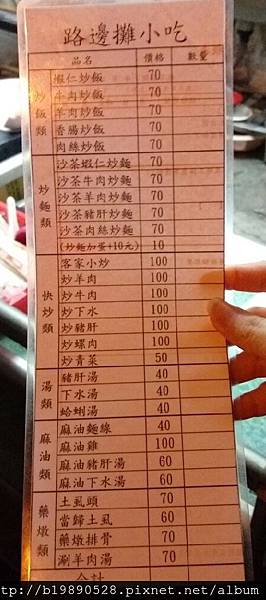 路邊攤小吃
品名 價格 數量
炒飯類
蝦仁炒飯 70
牛肉炒飯 70
羊肉炒飯 70
香腸炒飯 70
肉絲炒飯 70
炒麵類
沙茶蝦仁炒麵 70
沙茶牛肉炒麵 70
沙茶羊肉炒麵 70
沙茶豬肝炒麵 70
沙茶肉絲炒麵 70
(炒麵加蛋+10元) 10
快炒類
客家小炒 100
炒羊肉 100
炒牛肉 100
炒下水 100
炒豬肝 100
炒螺肉 100
炒青菜 50
湯類
豬肝湯 40
下水湯 40
蛤蜊湯 40
麻油類
麻油麵線 40
麻油雞 100
麻油豬肝湯 60
麻油下水湯 60
藥燉類
土虱頭 70
當歸土虱 60
藥燉排骨 70
涮羊肉湯 70
合計
http://b19890528.pixnet.net/album